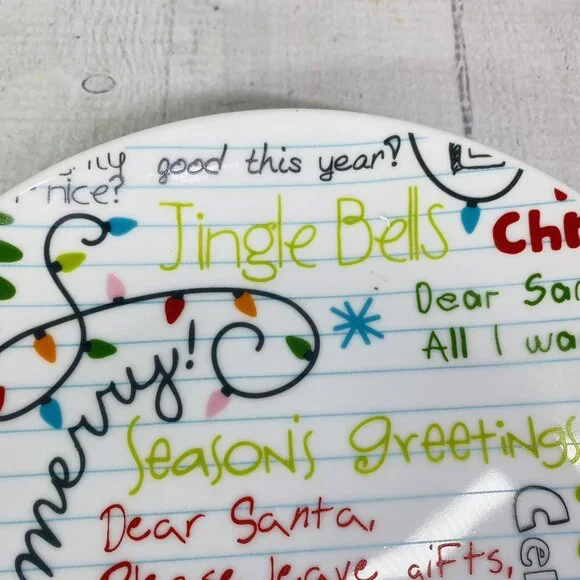 good this year?
nice?
Jingle Bells
Chr
Dear San
All I wa
merry!
Season's greetings
Dear Santa,
Please leave gifts,
Cer